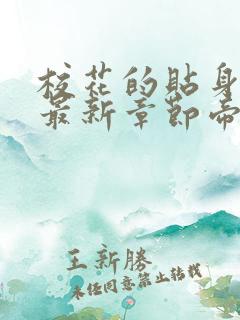 校花的貼身
最新章節帝
王新勝
未经同意禁止转载